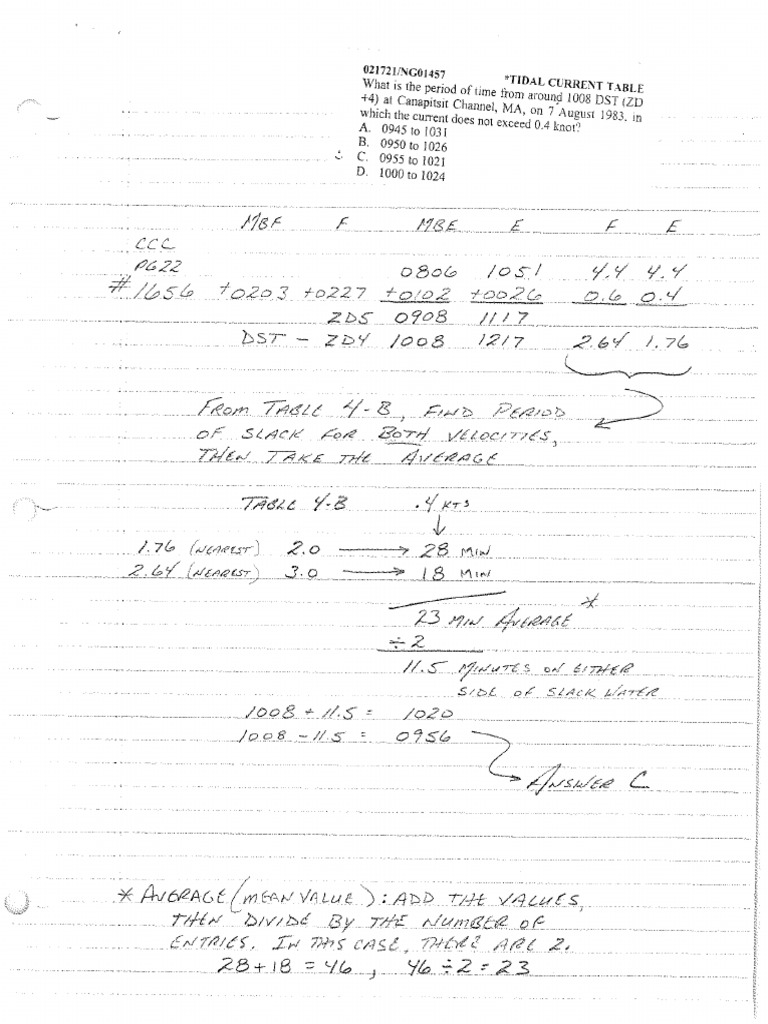 021721/NG01457 *TIDAL CURRENT TABLE
What is the period of time from around 1008 DST (ZD
+4) at Canapitsit Channel, MA, on 7 August 1983, in
which the current does not exceed 0.4 knot?
A. 0945 to 1031
B. 0950 to 1026
C. 0955 to 1021
D. 1000 to 1024
MBF F MBE E F E
CCC
PG22 0806 1051 4.4 4.4
#1656 +0203 +0227 +0102 +0026 0.6 0.4
ZD5 0908 1117
DST - ZD4 1008 1217 2.64 1.76
FROM TABLE 4-B, FIND PERIOD
OF SLACK FOR BOTH VELOCITIES,
THEN TAKE THE AVERAGE
TABLE 4-B .4 KTS
1.76 (NEAREST) 2.0 → 28 MIN
2.64 (NEAREST) 3.0 → 18 MIN
23 MIN AVERAGE *
÷2
11.5 MINUTES ON EITHER
SIDE OF SLACK WATER
1008 + 11.5 = 1020
1008 - 11.5 = 0956
ANSWER C
* AVERAGE (MEAN VALUE): ADD THE VALUES,
THEN DIVIDE BY THE NUMBER OF
ENTRIES. IN THIS CASE, THERE ARE 2.
28+18 = 46 , 46 ÷ 2 = 23